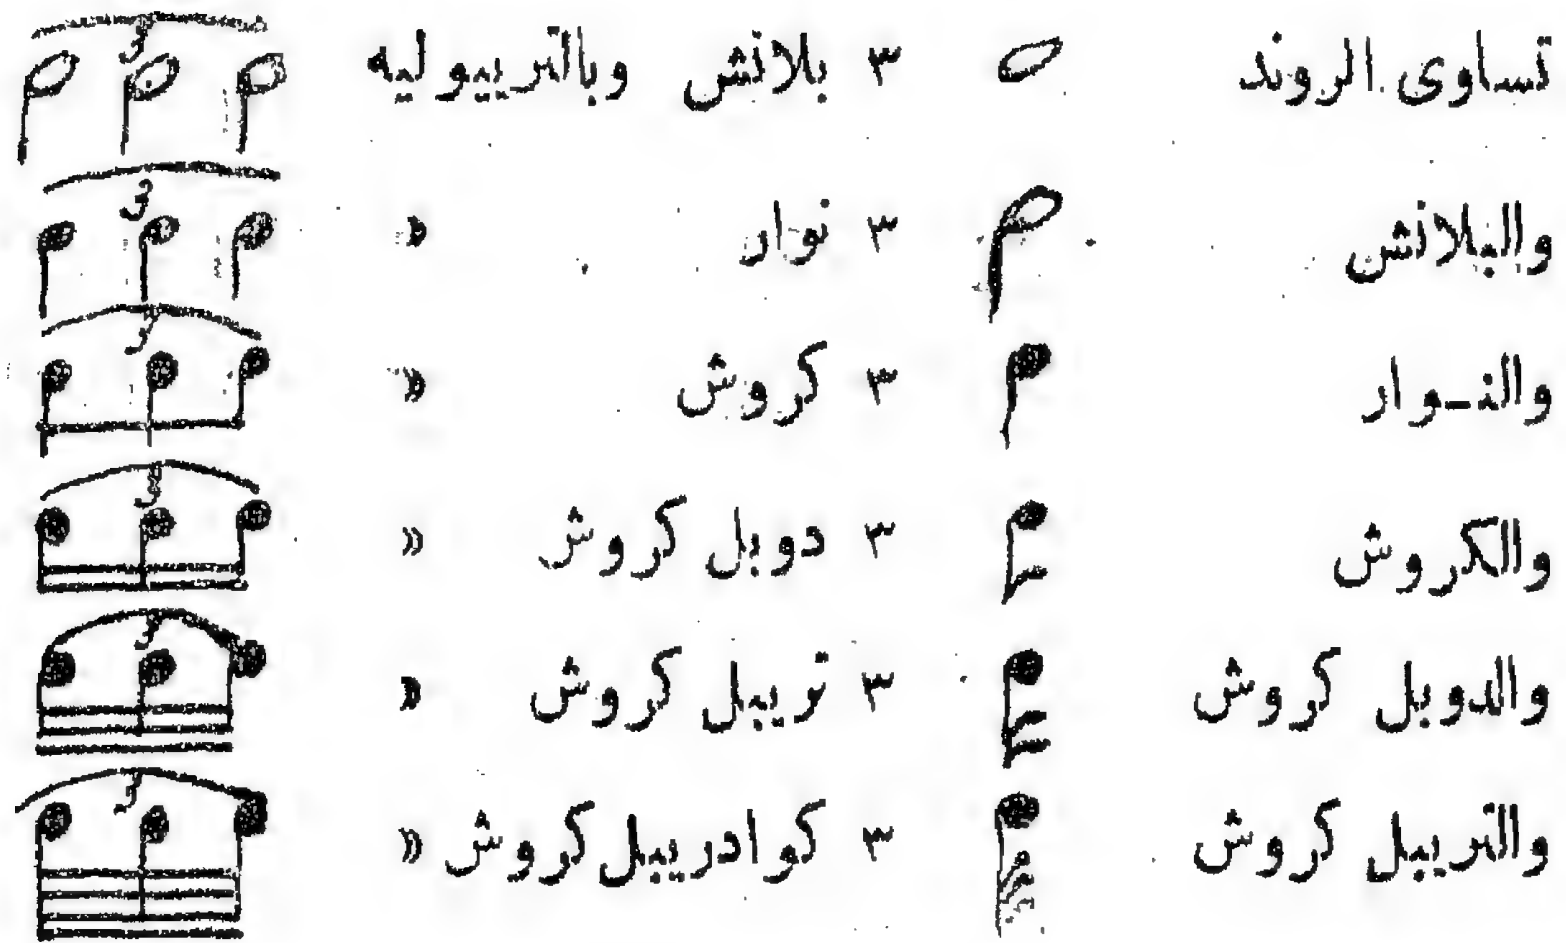 تساوى الروند ٣ بلانش وبالتربيوليه 3
والبلانش ٣ نوار » 3
والنـوار ٣ كروش » 3
والكروش ٣ دوبل كروش » 3
والدوبل كروش ٣ تريبل كروش » 3
والتريبل كروش ٣ كوادريبل كروش » 3